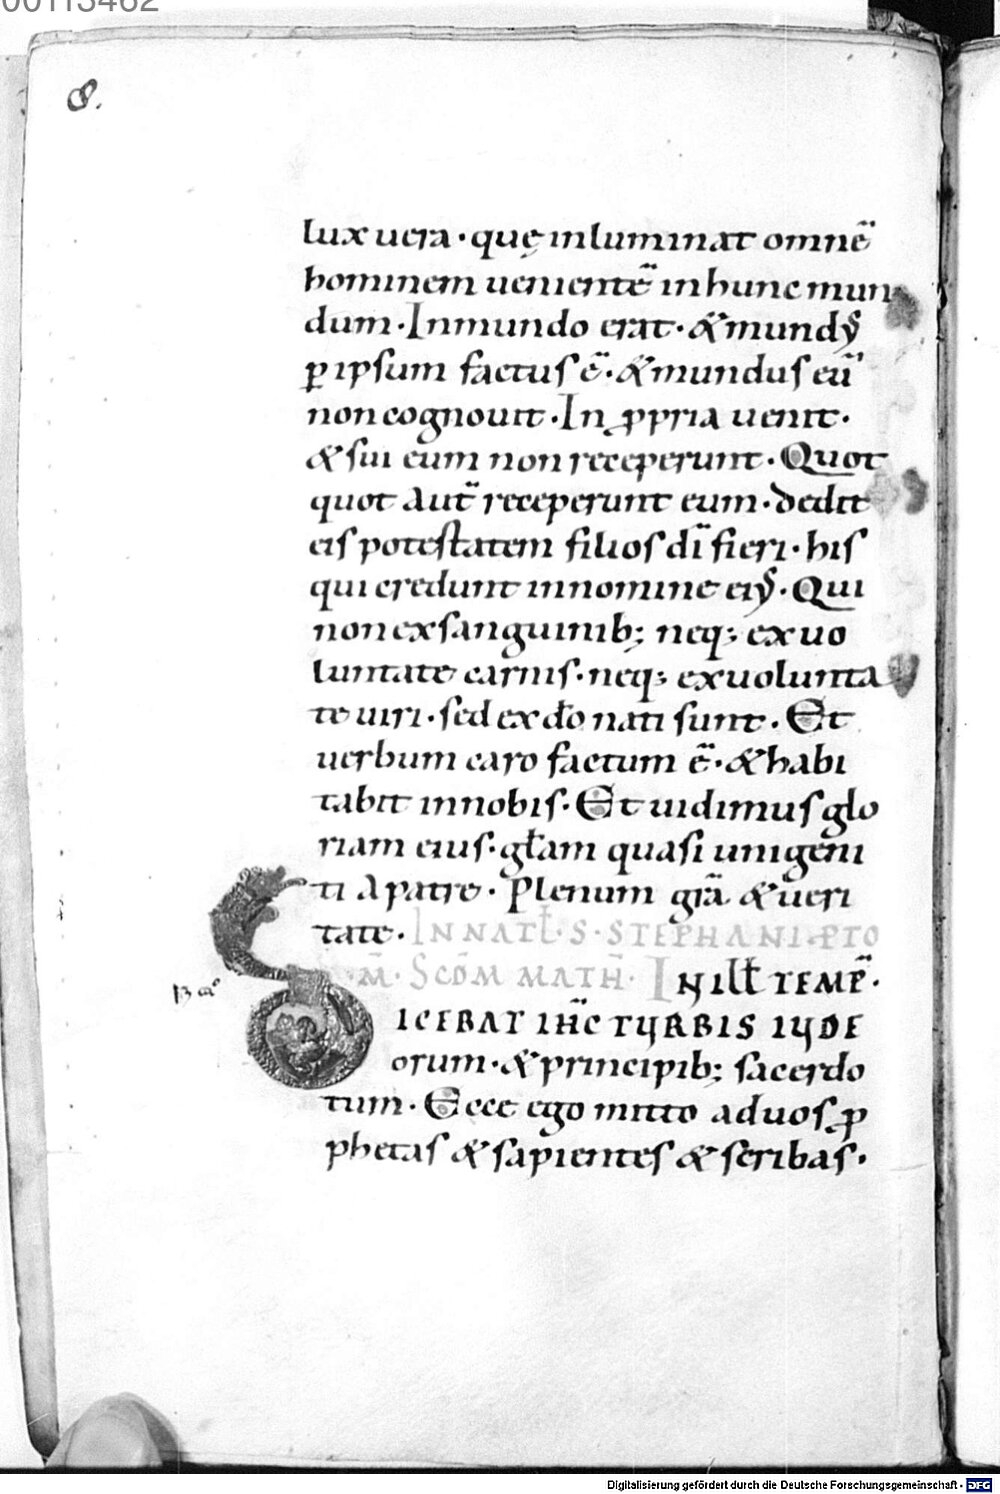 00113462
8.
lux uera · quę inluminat omnē
hominem uenientē in hunc mun
dum · In mundo erat · & mundus
ꝑ ipsum factus ē · & mundus eū
non cognouit · In ꝓpria uenit ·
& sui eum non receperunt · Quot
quot aut̄ receperunt eum · dedit
eis potestatem filios dī fieri · his
qui credunt in nomine eiꝰ · Qui
non ex sanguinib; neq; ex uo
luntate carnis · neq; ex uolunta
te uiri · sed ex do nati sunt · Et
uerbum caro factum ē · & habi
tabit in nobis · Et uidimus glo
riam eius · gl̄am quasi unigeni
ti a patre · Plenum grā & ueri
tate · IN NATL̄ · S · STEPHANI · PTO
M̄ · SCDM MATH̄ · IN ILL̄ TEMP̄ ·
DICEBAT IHC TURBIS IUDE
orum · & principib; sacerdo
tum · Ecce ego mitto ad uos ꝓ
phetas & sapientes & scribas ·
Digitalisierung gefördert durch die Deutsche Forschungsgemeinschaft - DFG